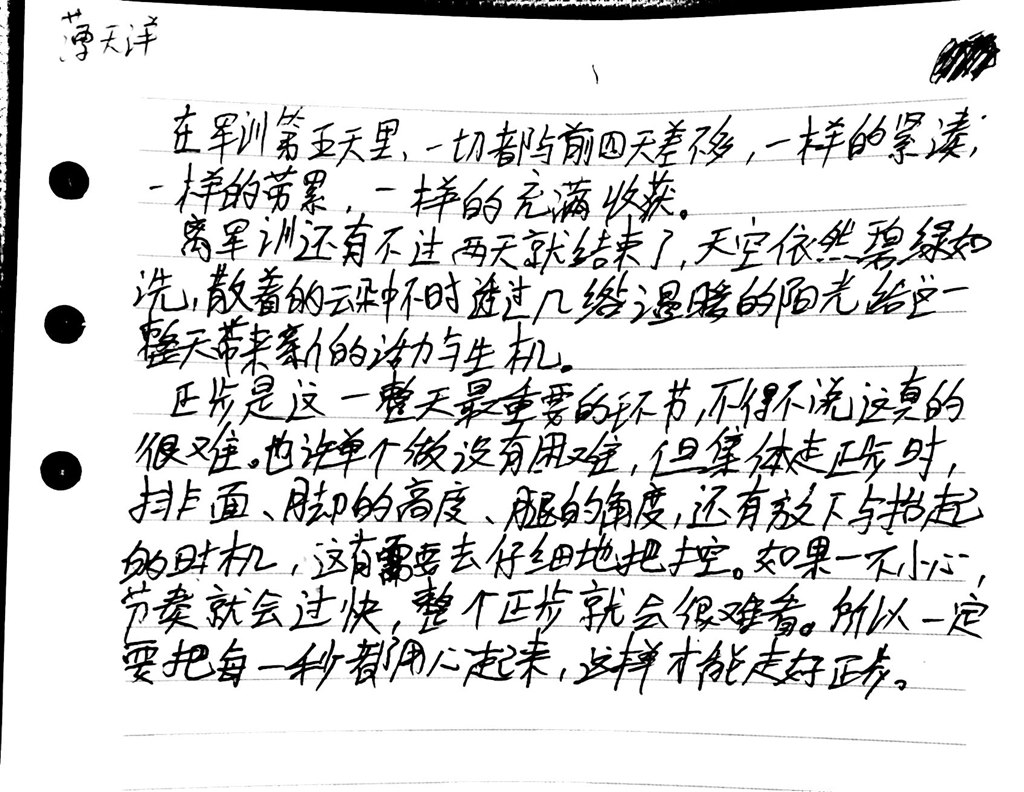 薄天洋
在军训第五天里、一切都与前四天差不多，一样的紧凑，
一样的劳累，一样的充满收获。
离军训还有不过两天就结束了，天空依然碧绿如
洗，散着的云朵中不时透过几缕温暖的阳光给这一
整天带来新的活力与生机。
正步是这一整天最重要的环节，不得不说这真的
很难。也许单个做没有困难，但集体走正步时，
排面、脚的高度、腿的角度，还有放下与抬起
的时机，这有需要去仔细地把控。如果一不小心，
节奏就会过快，整个正步就会很难看。所以一定
要把每一秒都用心起来，这样才能走好正步。